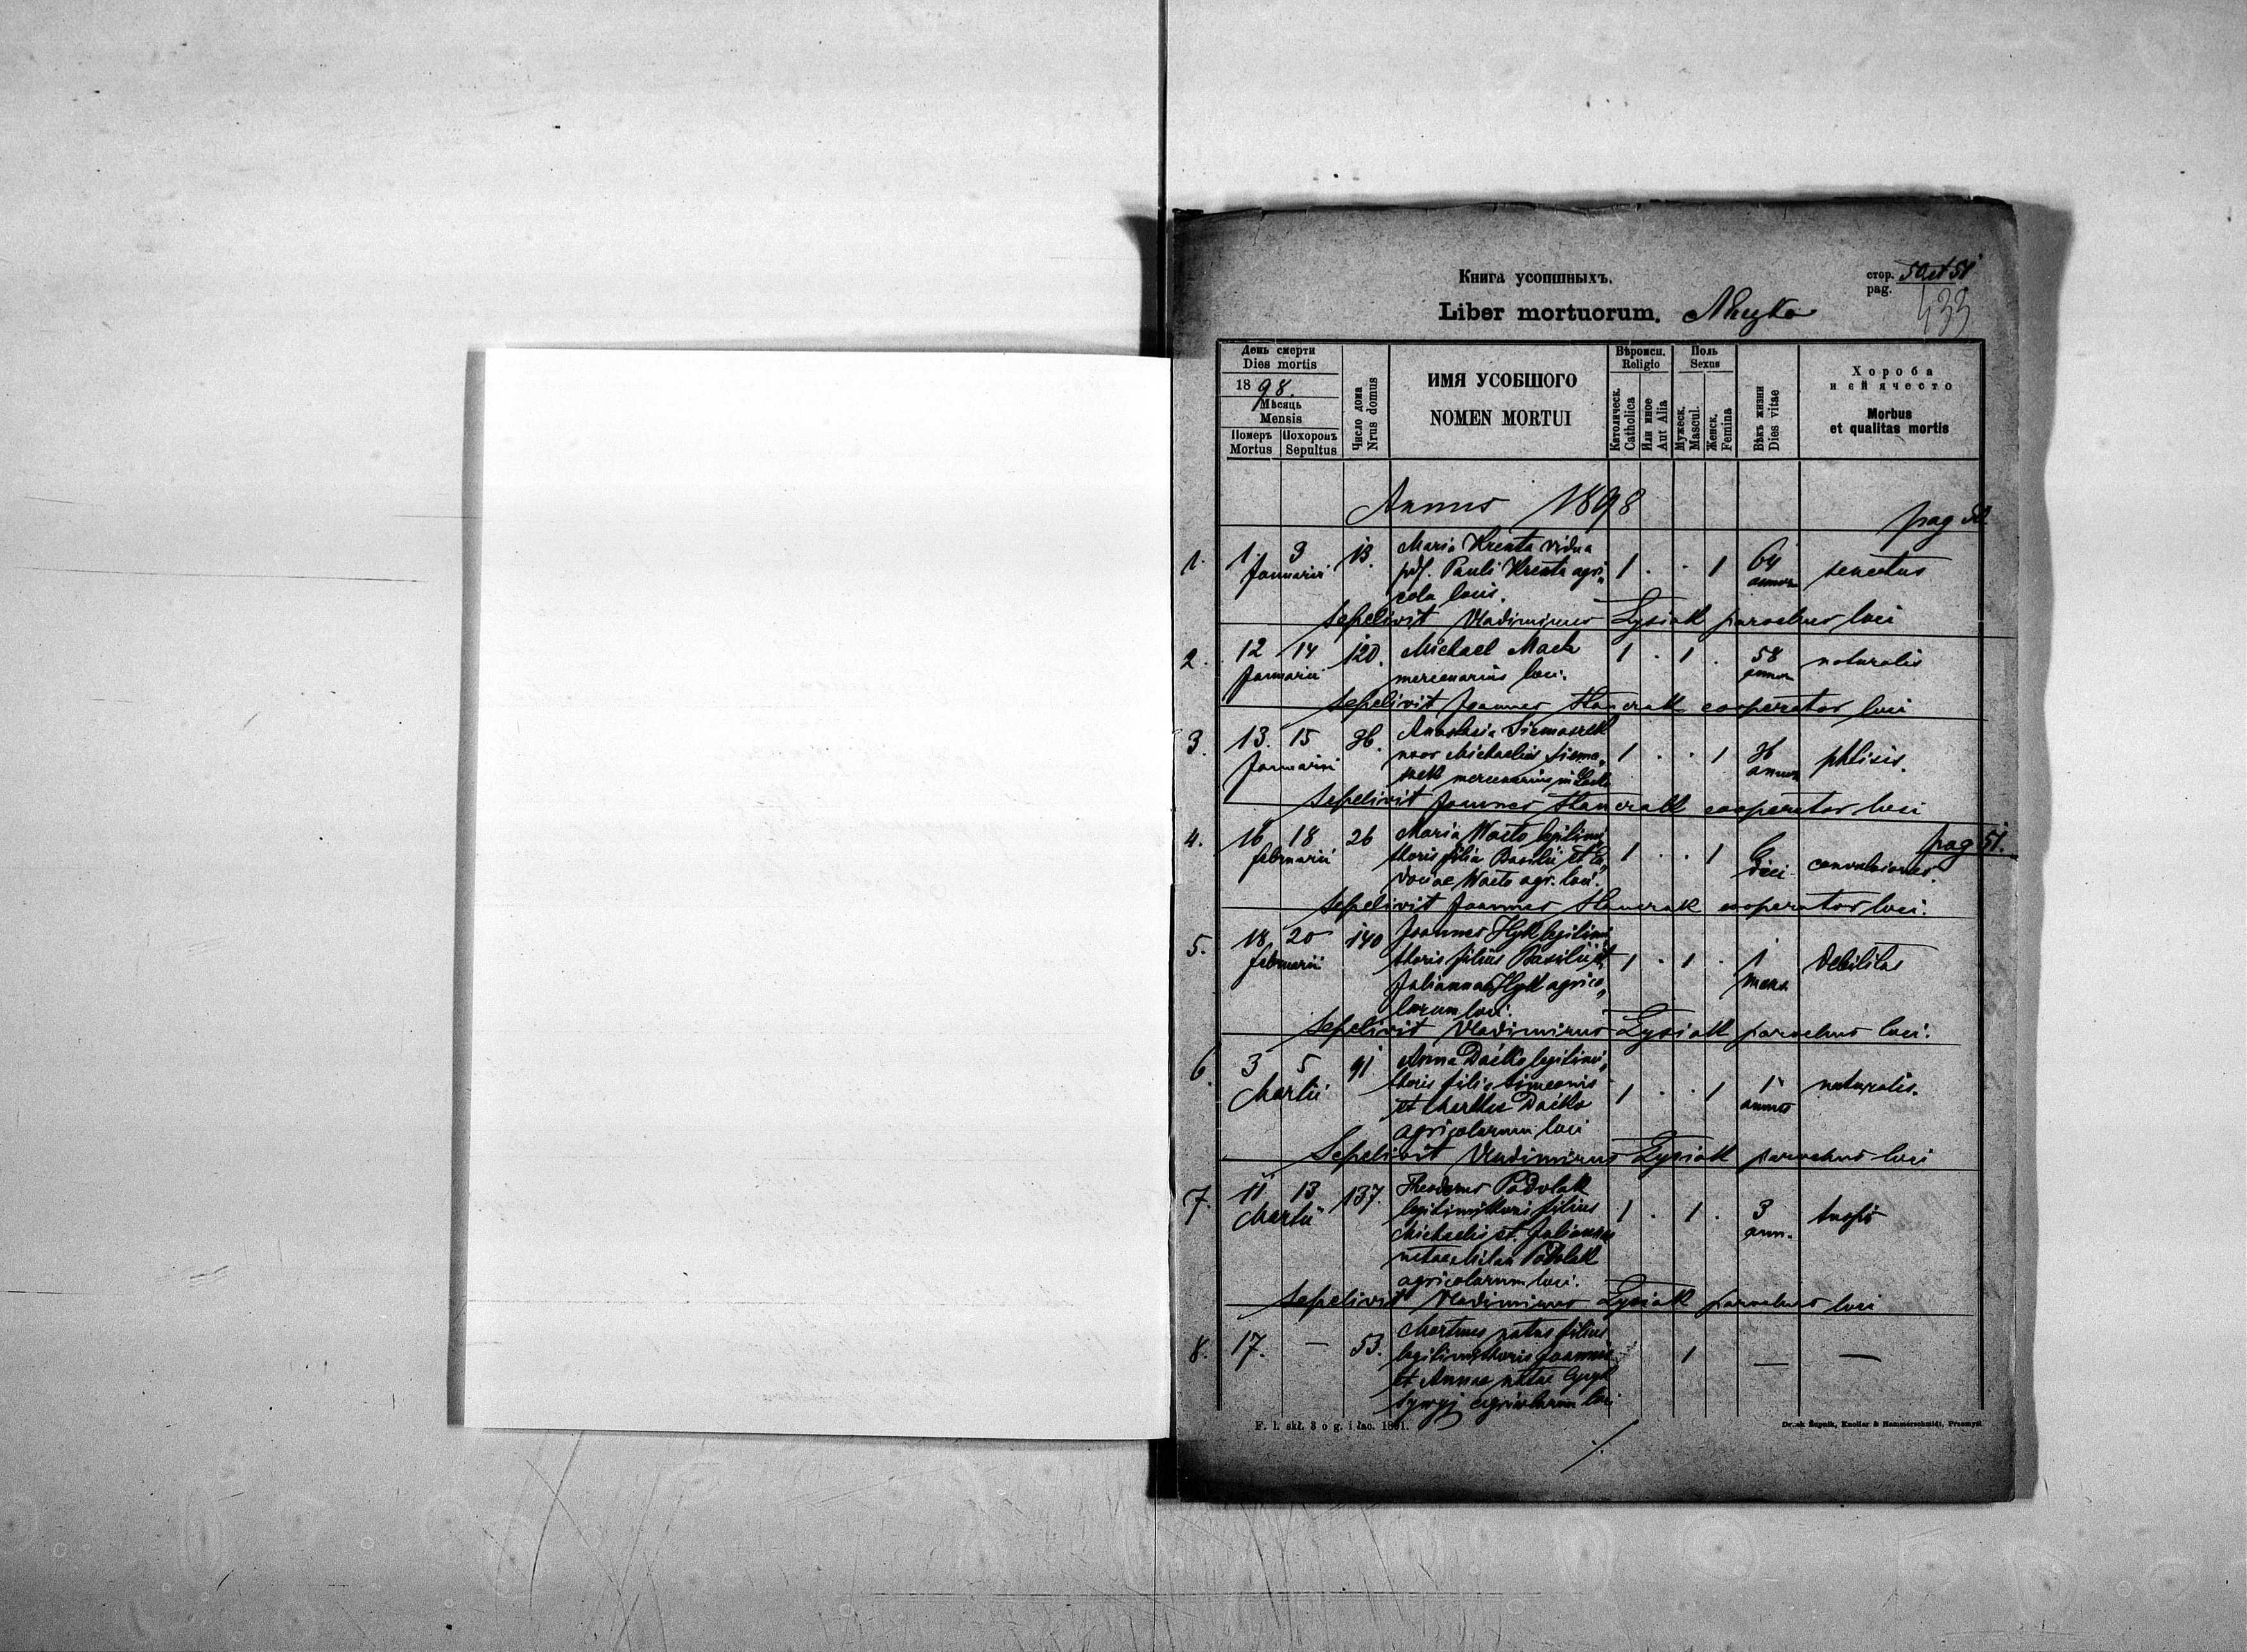 Книга усопшныхъ.
стор. 50 et 51
pag.
433
Liber mortuorum.
День смерти
Dies mortis
1898.
Мѣсяць
Mensis
Померъ Похоронъ
Mortus Sepultus
Число дома
Nrus domus
ИМЯ УСОБШОГО
NOMEN MORTUI
Вѣроисп.
Religio
Католическ.
Catholica
Или иное
Aut Alia
Поль
Sexus
Мужеск.
Mascul.
Женск.
Femina
Вѣкъ жизни
Dies vitae
Хороба
и єй ячесто
Morbus
et qualitas mortis
Annus 1898
pag 50
1. 1 3 13. Maria Krenta vidua
Januarii pdf. Pauli Krenta agri„ 1 . . 1 64 senectus
cola loci. annor
Sepelivit Vladimirus Łysiak parochus loci
2. 12 14 120. Michael Mach 1 . 1 . 58 naturalis
Januarii mercenarius loci. annor
Sepelivit Joannes cooperator loci
3. 13. 15 36. Anastasia
Januarii Michaelis 1 . . 1 36 phtisis.
mercenarius in annor
Sepelivit Joannes cooperator loci
4. 16 18 26 Maria Waeto legitimi pag 51.
februarii thoris filia Basilii et Eu„ 1 . . 1 6 convulsiones.
dociae Waeto agr. loci. diei
Sepelivit Joannes cooperator loci.
5. 18 20 140 Joannes Hyk legitimi
februarii thoris filius Basilii et 1 . 1 . 1 debilitas
Juliannae Hyk agrico„ mens
larum loci.
Sepelivit Vladimirus Łysiak parochus loci.
6. 3 5 91 Anna Daćko legitimi„
Martii thoris filia Simeonis 1 . . 1 1 naturalis.
et Marthae Daćko annus
agricolarum loci
Sepelivit Vladimirus Łysiak parochus loci
7. 11 13 137. Theodorus Podolak
Martii legitimi thori filius 1 . 1 . 3 tussis
Michaelis et Julianna ann.
natae Milan Podolak
agricolarum loci.
Sepelivit Vladimirus Łysiak parochus loci
8. 17. — 53. Mortuus natus filius
legitimi thoris Joannis 1 — —
et Annae natae
agricolarum loci
F. l. skł. 3 o g. i łac. 1891.
Druk Żupnik, Knoller & Hammerschmidt, Przemyśl